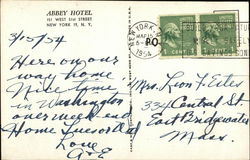 ABBEY HOTEL
151 WEST 51st STREET
NEW YORK 19, N. Y.
3/15/54
Here on our
way home.
Nice time
in Washington
over week end
Home Tues or Wed
Love
NEW YORK
MAR 15
1954
PO
1 CENT 1
1 CENT 1
Mrs. Leon F. Estes
334 Central St
East Bridgewater
Mass.